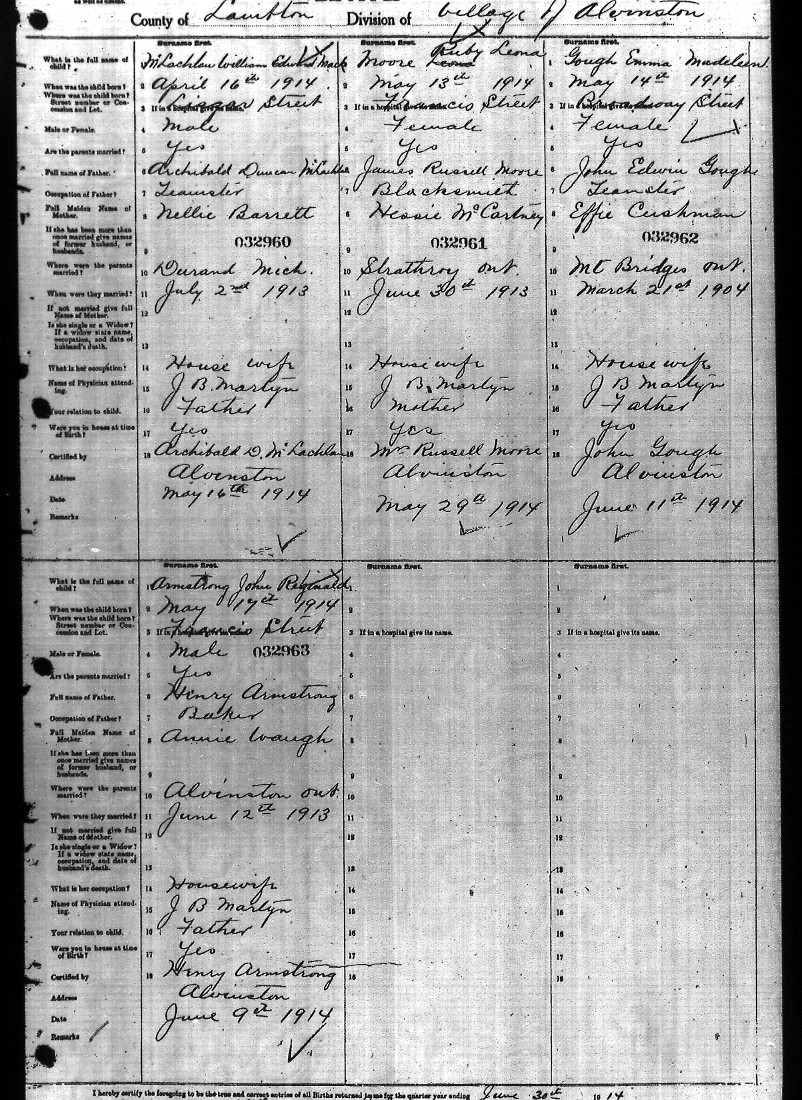 County of Lambton Division of Village of Alvinston
Surname first. Surname first. Surname first.
What is the full name of child? 1 McLachlan William Edward Mack 1 Moore Leona Ruby Leona 1 Gough Emma Madeleen
When was the child born? 2 April 16th 1914. 2 May 13th 1914 2 May 14th 1914
Where was the child born? Street number or Concession and Lot. 3 If in a hospital give name. Street 3 If in a hospital give name. Francis Street 3 If in a hospital give name. Broadway Street
Male or Female. 4 Male 4 Female 4 Female
Are the parents married? 5 Yes 5 Yes 5 Yes
Full name of Father. 6 Archibald Duncan McLachlan 6 James Russell Moore 6 John Edwin Gough
Occupation of Father? 7 Teamster 7 Blacksmith 7 Teamster
Full Maiden Name of Mother. 8 Nellie Barrett 8 Hessie McCartney 8 Effie Cushman
If she has been more than once married give names of former husband, or husbands. 9 032960 9 032961 9 032962
Where were the parents married? 10 Durand Mich. 10 Strathroy Ont. 10 Mt Bridges Ont.
When were they married? 11 July 2nd 1913 11 June 30th 1913 11 March 21st 1904
If not married give full Name of Mother. 12 12 12
Is she single or a Widow? If a widow state name, occupation, and date of husband's death. 13 13 13
What is her occupation? 14 House wife 14 Housewife 14 House wife
Name of Physician attending. 15 J. B. Martyn 15 J. B. Martyn 15 J B Martyn
Your relation to child. 16 Father 16 Mother 16 Father
Were you in house at time of Birth? 17 Yes 17 Yes 17 Yes
Certified by 18 Archibald D. McLachlan 18 Mrs Russell Moore 18 John Gough
Address Alvinston Alvinston Alvinston
Date May 16th 1914 May 29th 1914 June 11th 1914
Remarks
Surname first. Surname first. Surname first.
What is the full name of child? 1 Armstrong John Reginald 1 1
When was the child born? 2 May 17th 1914 2 2
Where was the child born? Street number or Concession and Lot. 3 If in a hospital give its name. Francis Street 3 If in a hospital give its name. 3 If in a hospital give its name.
Male or Female. 4 Male 032963 4 4
Are the parents married? 5 Yes 5 5
Full name of Father. 6 Henry Armstrong 6 6
Occupation of Father? 7 Baker 7 7
Full Maiden Name of Mother. 8 Annie Waugh 8 8
If she has been more than once married give names of former husband, or husbands. 9 9 9
Where were the parents married? 10 Alvinston Ont 10 10
When were they married? 11 June 12th 1913 11 11
If not married give full Name of Mother. 12 12 12
Is she single or a Widow? If a widow state name, occupation, and date of husband's death. 13 13 13
What is her occupation? 14 Housewife 14 14
Name of Physician attending. 15 J B Martyn 15 15
Your relation to child. 16 Father 16 16
Were you in house at time of Birth? 17 Yes 17 17
Certified by 18 Henry Armstrong 18 18
Address Alvinston
Date June 9th 1914
Remarks
I hereby certify the foregoing to be the true and correct entries of all Births returned to me for the quarter year ending June 30th 1914